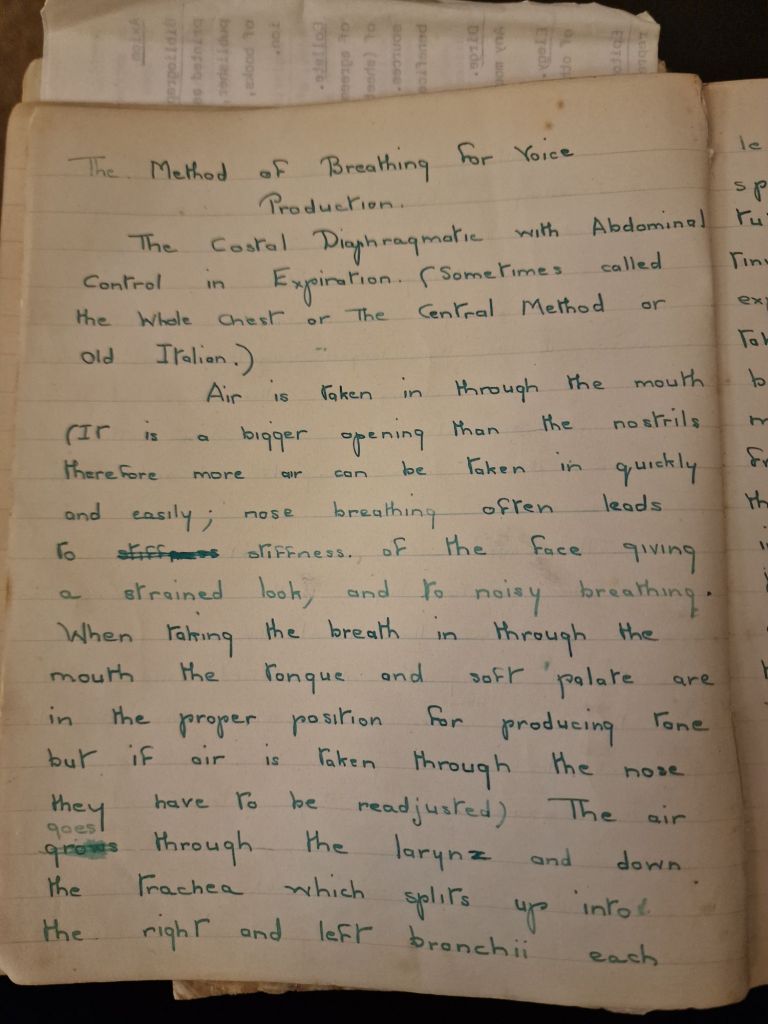 The Method of Breathing for Voice
Production.
The Costal Diaphragmatic with Abdominal
Control in Expiration. (Sometimes called
the Whole Chest or The Central Method or
old Italian.)
Air is taken in through the mouth
(It is a bigger opening than the nostrils
therefore more air can be taken in quickly
and easily; nose breathing often leads
to stiffness stiffness. of the face giving
a strained look, and to noisy breathing.
When taking the breath in through the
mouth the tongue and soft palate are
in the proper position for producing tone
but if air is taken through the nose
they have to be readjusted) The air
goes
grows through the larynz and down
the trachea which splits up into
the right and left bronchii each